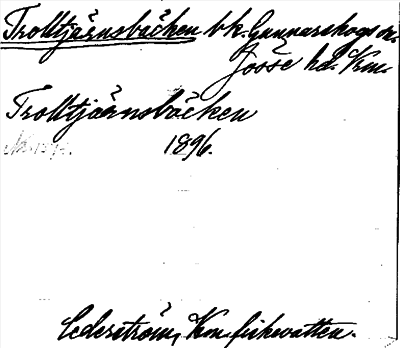 Trolltjärnsbäcken bk. Gunnarskogs sn.
Jösse hd. Vrm.
Trolltjärnsbäcken
1896.
Cederström, Vrm. fiskevatten.